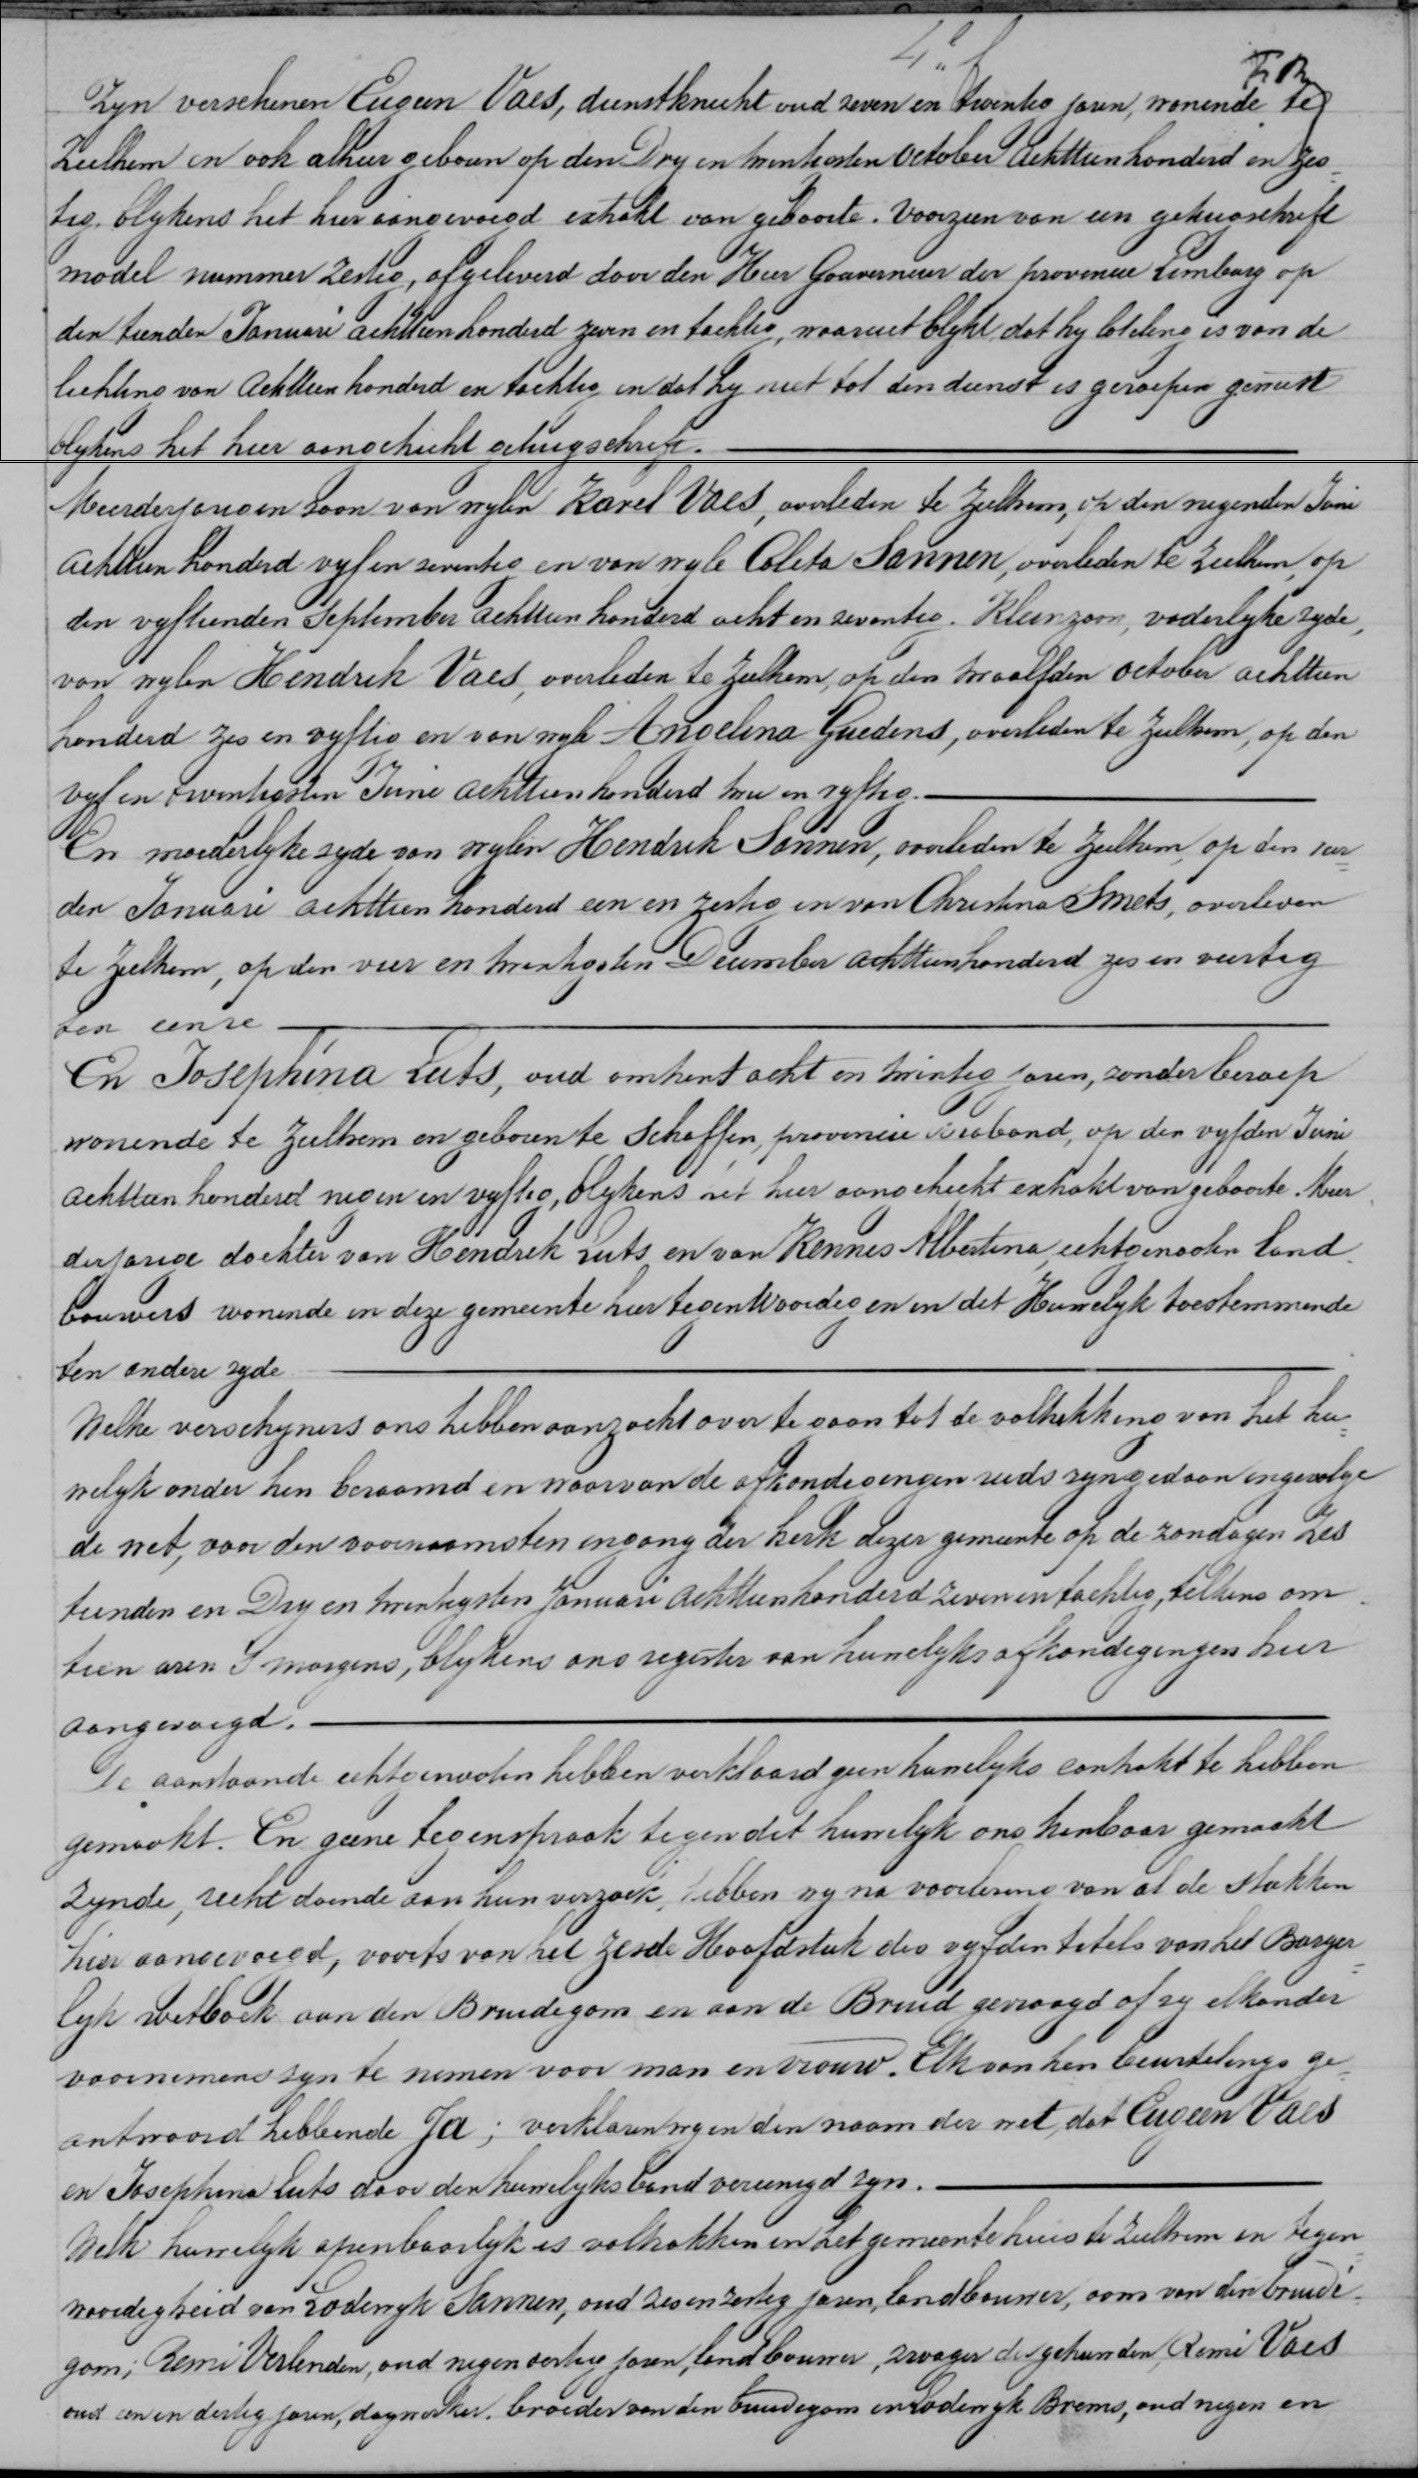 Zyn verschenen Eugeen Vaes, dienstknecht oud zeven en twintig jaren, wonende te
Zeelhem en ook alhier geboren op den Dry en twintigsten October achttien honderd en zes=
tig, blykens het hier aangevoegd extrakt van geboorte. Voorzien van een getuigschrift
model nummer Zestig, afgeleverd door den Heer Gouverneur der provincie Limburg op
den tienden Januari achttien honderd zeven en tachtig, waaruit blykt dat hy loteling is van de
lichting van Achttien honderd en tachtig en dat hy niet tot den dienst is geroepen geweest
blykens het hier aangehecht getuigschrift.
Meerderjarigen zoon van wylen Karel Vaes, overleden te Zeelhem, op den negenden Juni
achttien honderd vyf en zeventig en van wyle Coleta Sannen, overleden te Zeelhem, op
den vyftienden September achttien honderd acht en zeventig. Kleinzoon, vaderlyke zyde,
van wylen Hendrik Vaes, overleden te Zeelhem, op den twaalfden october achttien
honderd zes en vyftig en van wyle Angelina Geudens, overleden te Zeelhem, op den
vyf en twintigsten Juni achttien honderd twee en vyftig.
En moederlyke zyde van wylen Hendrik Sannen, overleden te Zeelhem, op den vier=
den Januari achttien honderd een en zestig en van Christina Smets, overleven
te Zeelhem, op den vier en twintigsten December achttien honderd zes en veertig
ten eenre
En Josephina Luts, oud omtrent acht en twintig jaren, zonder beroep
wonende te Zeelhem en geboren te Schaffen, provincie Braband, op den vyfden Juni
achttien honderd negen en vyftig, blykens het hier aangehecht extrakt van geboorte. Meer
derjarige dochter van Hendrik Luts en van Kennes Albertina, echtgenooten land
bouwers wonende in deze gemeente hier tegenwoordig en in dit Huwelyk toestemmende
ten andere zyde
Welke verschyners ons hebben aanzocht over te gaan tot de voltrekking van het hu=
welyk onder hen beraamd en waarvan de afkondigingen reeds zyn gedaan ingevolge
de wet, voor den voornaamsten ingang der kerk dezer gemeente op de zondagen Zes
tienden en Dry en twintigsten Januari achttien honderd zeven en tachtig, telkens om
tien uren S morgens, blykens ons register van huwelyks afkondigingen hier
aangevoegd.
De aanstaande echtgenooten hebben verklaard geen huwelyks contrakt te hebben
gemaakt. En geene tegenspraak tegen dit huwelyk ons kenbaar gemaakt
zynde, recht doende aan hun verzoek, hebben wy na voorlezing van al de stukken
hier aangevoegd, voorts van het zesde Hoofdstuk des vyfden titels van het Burger=
lyk wetboek aan den Bruidegom en aan de Bruid gevraagd of zy elkander
voornemens zyn te nemen voor man en vrouw. Elk van hen beurtelings ge=
antwoord hebbende Ja; verklaren wy in den naam der wet, dat Eugeen Vaes
en Josephina Luts door den huwelyks band vereenigd zyn.
Welk huwelyk openbaarlyk is voltrokken in het gemeente huis te Zeelhem in tegen=
woordigheid van Lodewyk Sannen, oud zes en zestig jaren, landbouwer, oom van den bruide=
gom; Remi Verlinden, oud negen veertig jaren, landbouwer, zwager des gehuwden, Remi Vaes
oud een en dertig jaren, dagwerker, broeder van den bruidegom en Lodewyk Brems, oud negen en